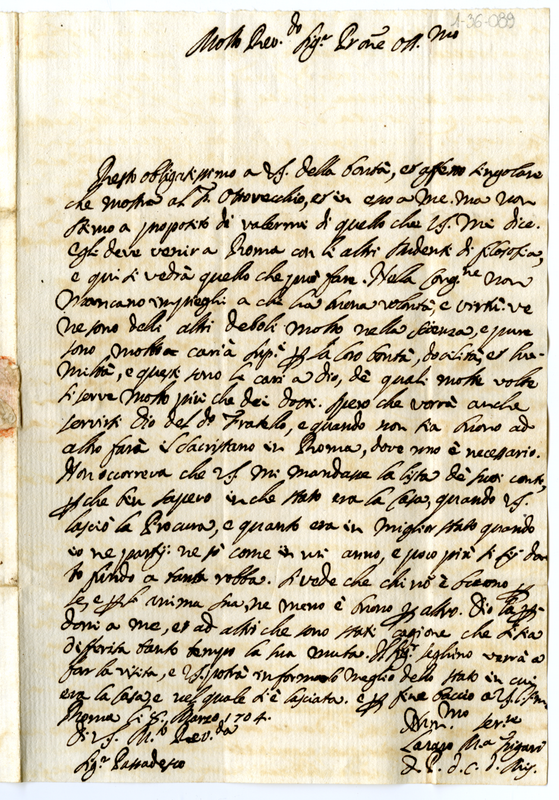 1-36-089
Molto Rev.do Sig.r Prone Oss.mo
Resto obligatissimo a V.S. della bontà, et affetto singolare
che mostra al F. Otrovecchio, et in esso a me. ma non
stimo a proposito di valermi di quello che V.S. mi dice.
Egli deve venir a Roma con li altri studenti di filosofia,
e qui si vedrà quello che può fare. Nella Cong.ne non
mancano impieghi a chi hà buona volontà, e virtù. ve
ne sono delli altri deboli molto nella scienza, e pure
sono molto cari à per la loro bontà, docilità, et hu-
miltà, e questi sono li cari a Dio, de quali molte volte
si serve molto più che dei dotti. spero che vorrà anche
servirsi Dio del do Fratello, e quando non sia buono ad
altro farà il sacristano in Roma, dove uno è necessario.
Non occorreva che V.S. mi mandasse la lista de suoi conti,
perche ben sapevo in che stato era la Casa, quando V.S.
lasciò la Procura, e quanto era in miglior stato quando
io ne partij. ne sò come in un anno, e poco più si sij da-
to fondo a tanta robba. si vede che chi nõ è buono per
se, e per l'anima sua, ne meno è buono per altro. Dio la per-
doni a me, et ad altri che sono stati cagione che si sia
differita tanto tempo la sua muta. Il Sig.r verrà a
far la visita, e V.S. potrà informarlo meglio dello stato in cui
era la Casa, e nel quale si è lasciata. e per fine baccio a V.S.
Roma li Marzo 1704.
di V.S. M.to Rev.da
Sig.r Passadesco
mo ser.re
Lazaro M.a Figari
d. C. d. Mis.